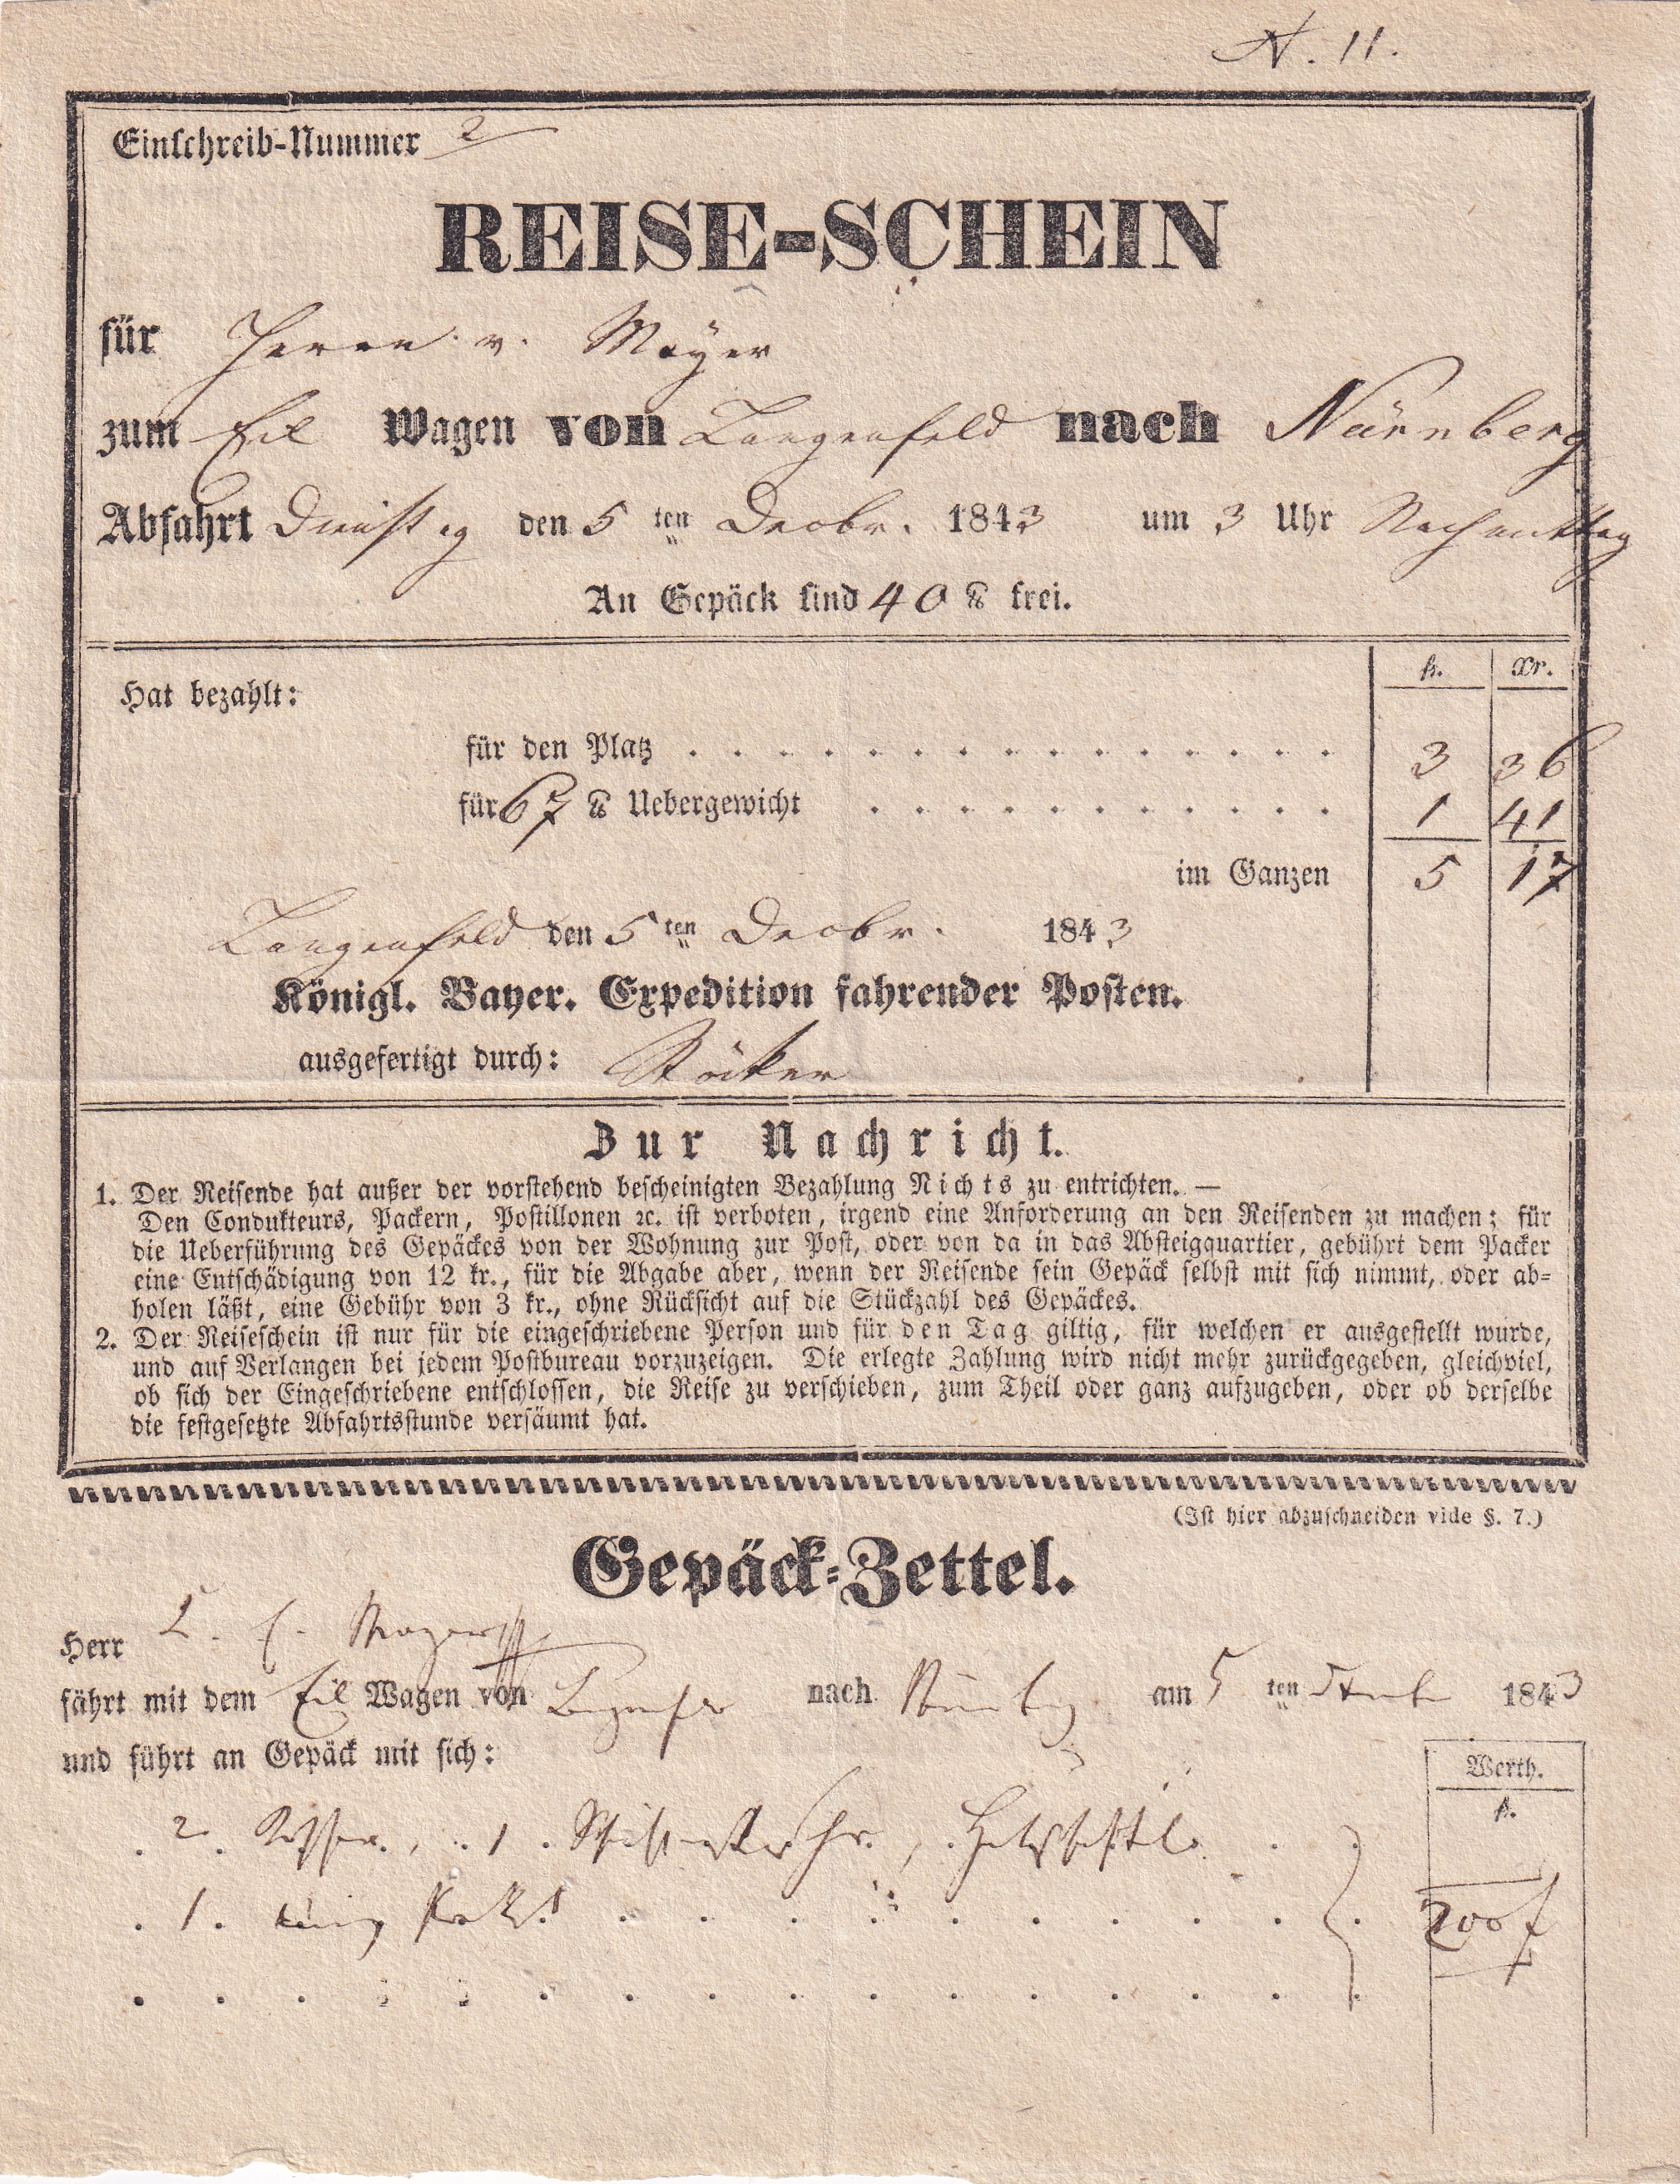 N. 11.
Einschreib-Nummer 2
REISE-SCHEIN
für Herrn v. Mayer
zum Eil Wagen von Langenfeld nach Nürnberg
Abfahrt Dienstag den 5 ten Decbr. 1843 um 3 Uhr Nachmittag
An Gepäck sind 40 ℔ frei.
fl. xr.
Hat bezahlt:
für den Platz . . . . . . . . . . . . . . . 3 36
für 67 ℔ Uebergewicht . . . . . . . . . . . 1 41
im Ganzen 5 17
Langenfeld den 5 ten Decbr. 1843
Königl. Bayer. Expedition fahrender Posten.
ausgefertigt durch:
Zur Nachricht.
1. Der Reisende hat außer der vorstehend bescheinigten Bezahlung Nichts zu entrichten. —
Den Condukteurs, Packern, Postillonen ꝛc. ist verboten, irgend eine Anforderung an den Reisenden zu machen; für
die Ueberführung des Gepäckes von der Wohnung zur Post, oder von da in das Absteigquartier, gebührt dem Packer
eine Entschädigung von 12 kr., für die Abgabe aber, wenn der Reisende sein Gepäck selbst mit sich nimmt, oder ab-
holen läßt, eine Gebühr von 3 kr., ohne Rücksicht auf die Stückzahl des Gepäckes.
2. Der Reiseschein ist nur für die eingeschriebene Person und für den Tag giltig, für welchen er ausgestellt wurde,
und auf Verlangen bei jedem Postbureau vorzuzeigen. Die erlegte Zahlung wird nicht mehr zurückgegeben, gleichviel,
ob sich der Eingeschriebene entschlossen, die Reise zu verschieben, zum Theil oder ganz aufzugeben, oder ob derselbe
die festgesetzte Abfahrtsstunde versäumt hat.
(Ist hier abzuschneiden vide §. 7.)
Gepäck-Zettel.
Herr Mayer
fährt mit dem Eil Wagen von nach Nürnbg am 5 ten 1843
und führt an Gepäck mit sich:
Werth.
fl.
2 Koffer, 1
1. 200 f